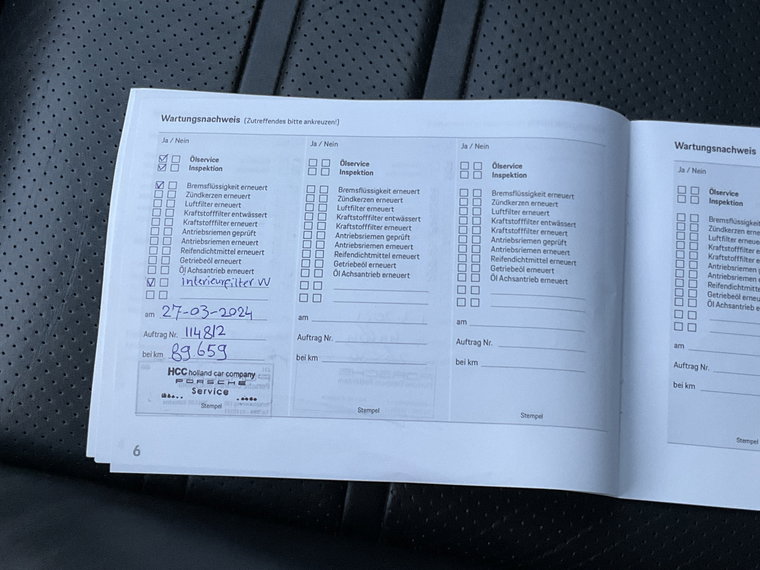 Wartungsnachweis (Zutreffendes bitte ankreuzen!)
Ja / Nein
Ölservice
Inspektion
Bremsflüssigkeit erneuert
Zündkerzen erneuert
Luftfilter erneuert
Kraftstofffilter entwässert
Kraftstofffilter erneuert
Antriebsriemen geprüft
Antriebsriemen erneuert
Reifendichtmittel erneuert
Getriebeöl erneuert
Öl Achsantrieb erneuert
Interieurfilter VV
am 27-03-2024
Auftrag Nr. 114812
bei km 89.659
HCC holland car company
PORSCHE
Service
Stempel
Ja / Nein
Ölservice
Inspektion
Bremsflüssigkeit erneuert
Zündkerzen erneuert
Luftfilter erneuert
Kraftstofffilter entwässert
Kraftstofffilter erneuert
Antriebsriemen geprüft
Antriebsriemen erneuert
Reifendichtmittel erneuert
Getriebeöl erneuert
Öl Achsantrieb erneuert
am
Auftrag Nr.
bei km
Stempel
Ja / Nein
Ölservice
Inspektion
Bremsflüssigkeit erneuert
Zündkerzen erneuert
Luftfilter erneuert
Kraftstofffilter entwässert
Kraftstofffilter erneuert
Antriebsriemen geprüft
Antriebsriemen erneuert
Reifendichtmittel erneuert
Getriebeöl erneuert
Öl Achsantrieb erneuert
am
Auftrag Nr.
bei km
Stempel
6
Wartungsnachweis
Ja / Nein
Ölservice
Inspektion
Bremsflüssigkeit
Zündkerzen erne
Luftfilter erneue
Kraftstofffilter e
Kraftstofffilter e
Antriebsriemen g
Antriebsriemen e
Reifendichtmitte
Getriebeöl erneu
Öl Achsantrieb e
am
Auftrag Nr.
bei km
Stempel